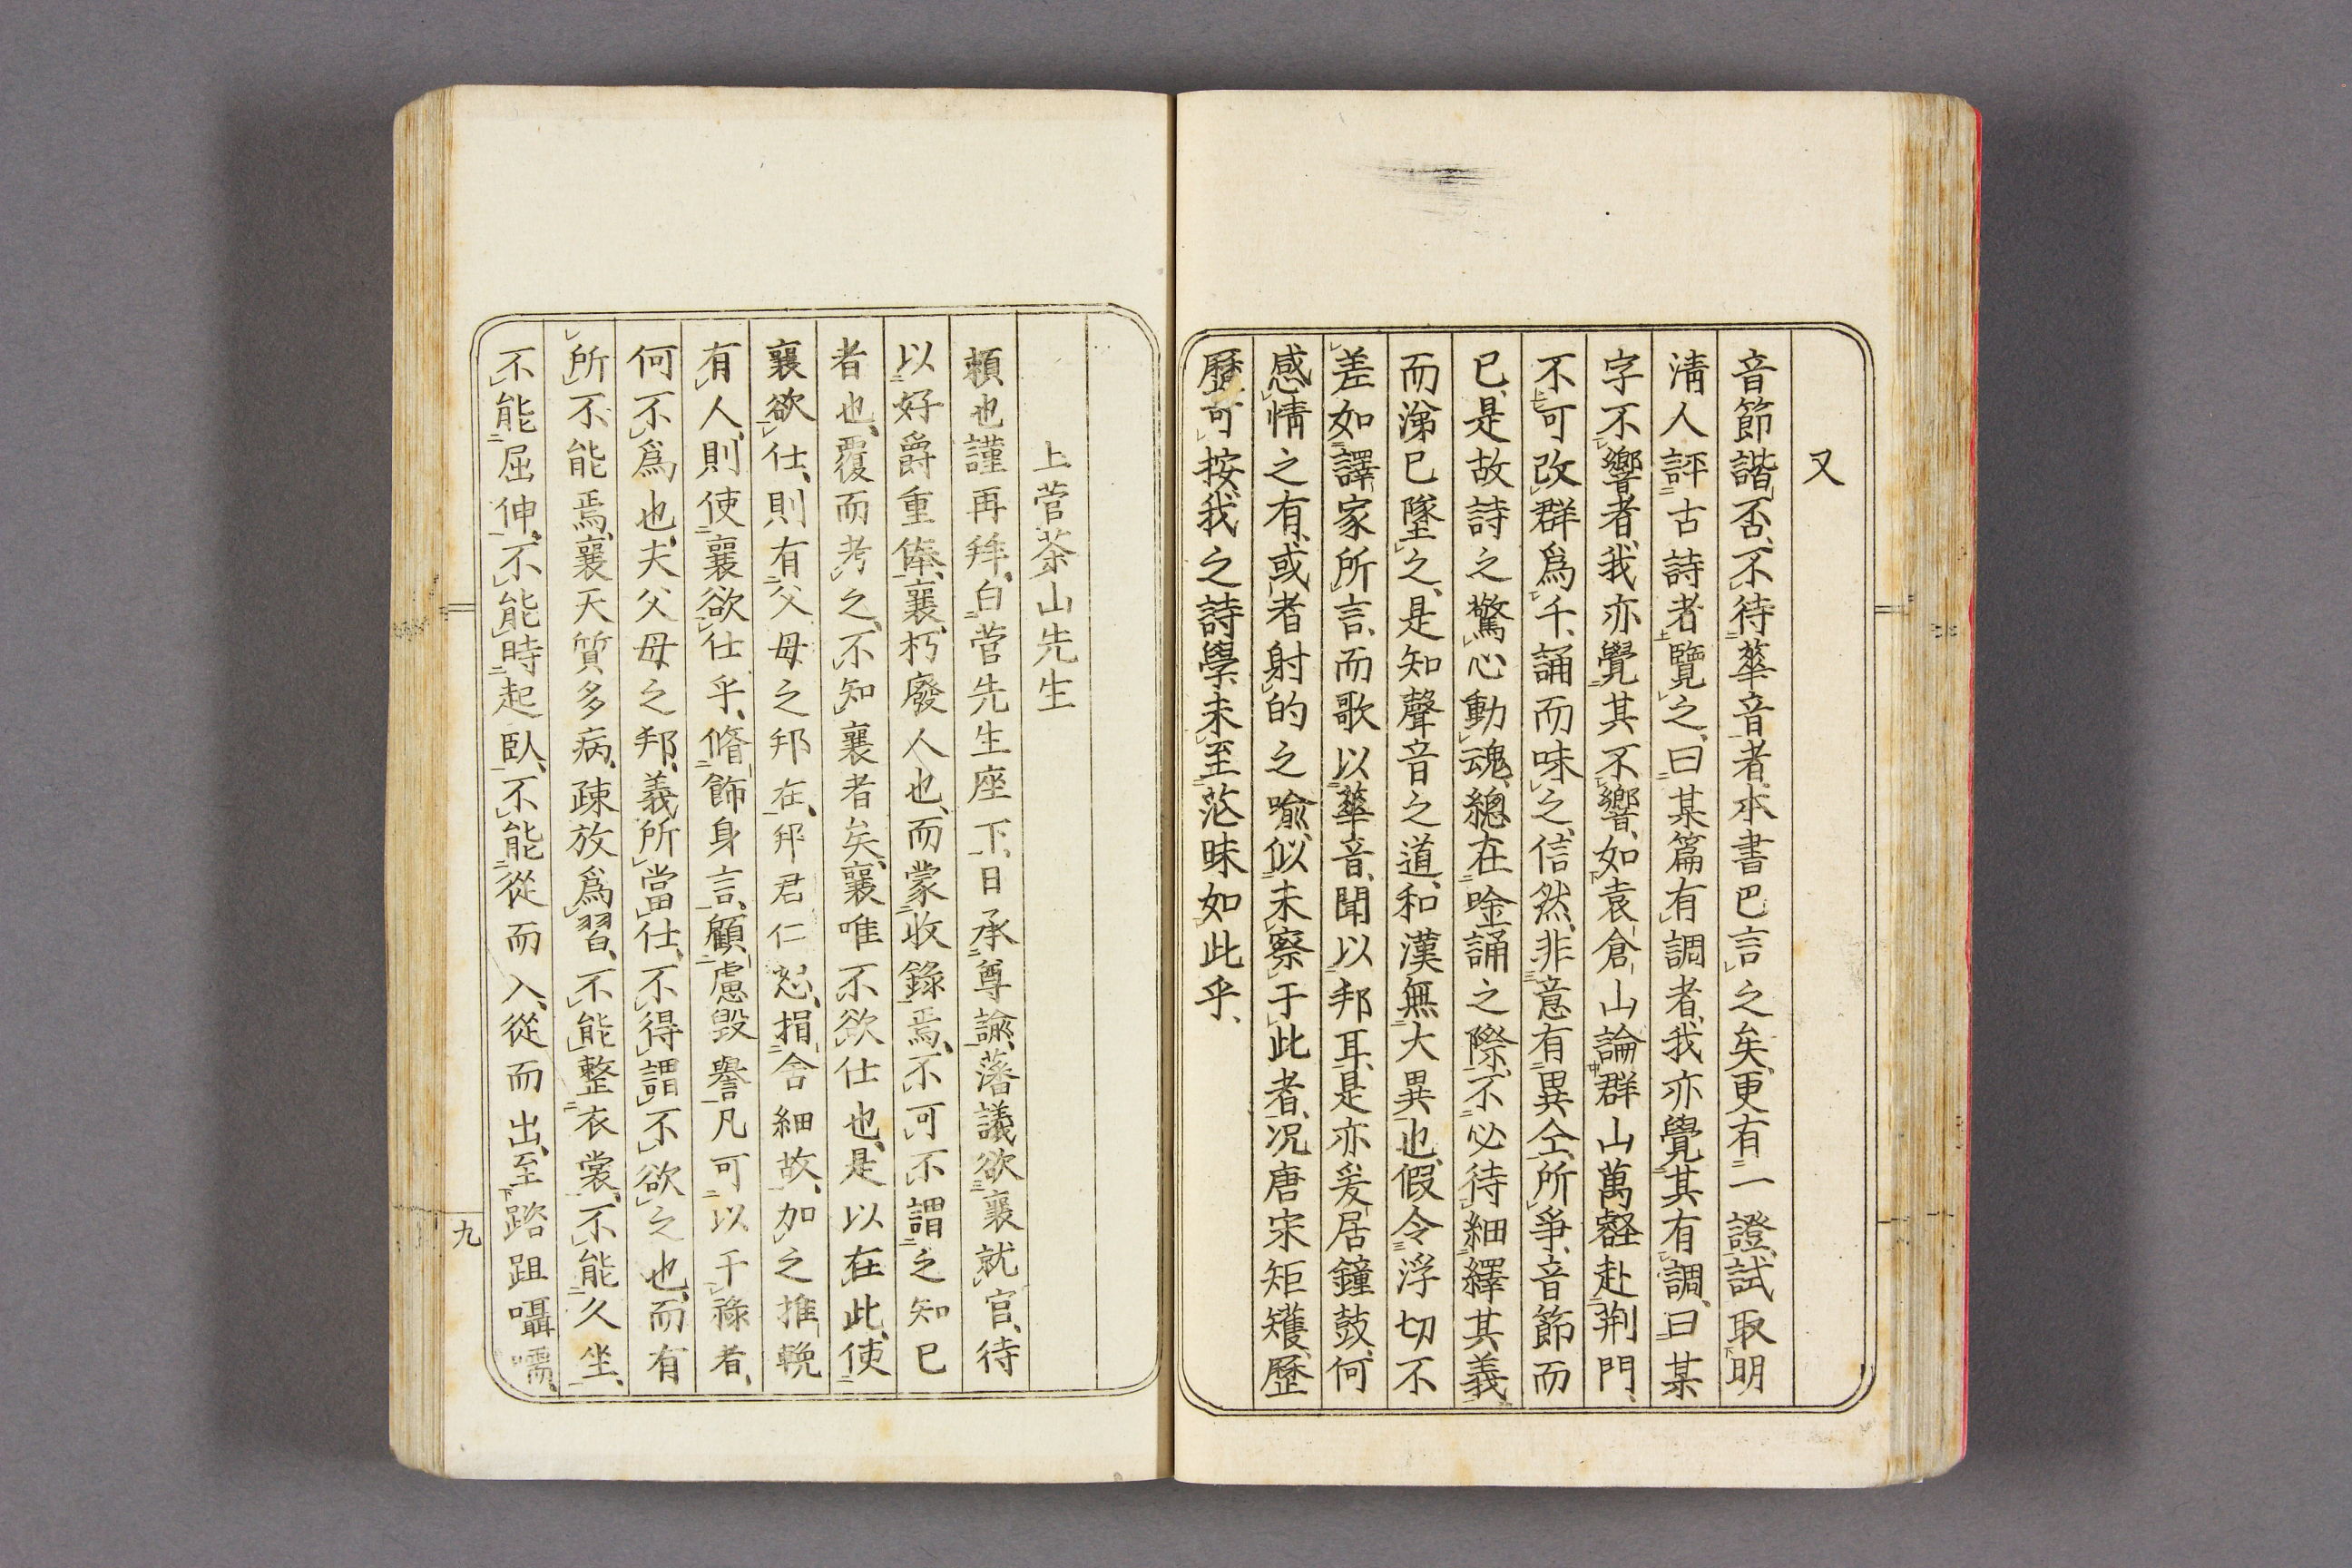 又
音節諧否、不待華音者、本書已言之矣、更有一證、試取明
淸人評古詩者覽之、曰某篇有調者、我亦覺其有調、曰某
字不響者、我亦覺其不響、如袁倉山論群山萬壑赴荆門、
不可改群爲千、誦而味之、信然、非意有異仝、所爭音節而
已、是故詩之驚心動魂、總在唫誦之際、不必待細繹其義
而涕已墜之、是知聲音之道、和漢無大異也、假令浮切不
差如譯家所言、而歌以華音、聞以邦耳、是亦爰居鐘鼓、何
感情之有、或者射的之喩、似未察于此者、况唐宋矩矱、歷
歷可按、我之詩學、未至茫昧如此乎、
上菅茶山先生
賴也謹再拜、白菅先生座下、日承尊諭、藩議欲襄就官、待
以好爵重俸、襄朽廢人也、而蒙收錄焉、不可不謂之知己
者也、覆而考之、不知襄者矣、襄唯不欲仕也、是以在此、使
襄欲仕、則有父母之邦在、邦君仁恕、捐舍細故、加之推輓
有人、則使襄欲仕乎、脩飾身言、顧慮毀譽、凡可以干祿者、
何不爲也、夫父母之邦、義所當仕、不得謂不欲之也、而有
所不能焉、襄天質多病、疎放爲習、不能整衣裳、不能久坐、
不能屈伸、不能時起臥、不能從而入、從而出、至踏跙囁嚅、
九